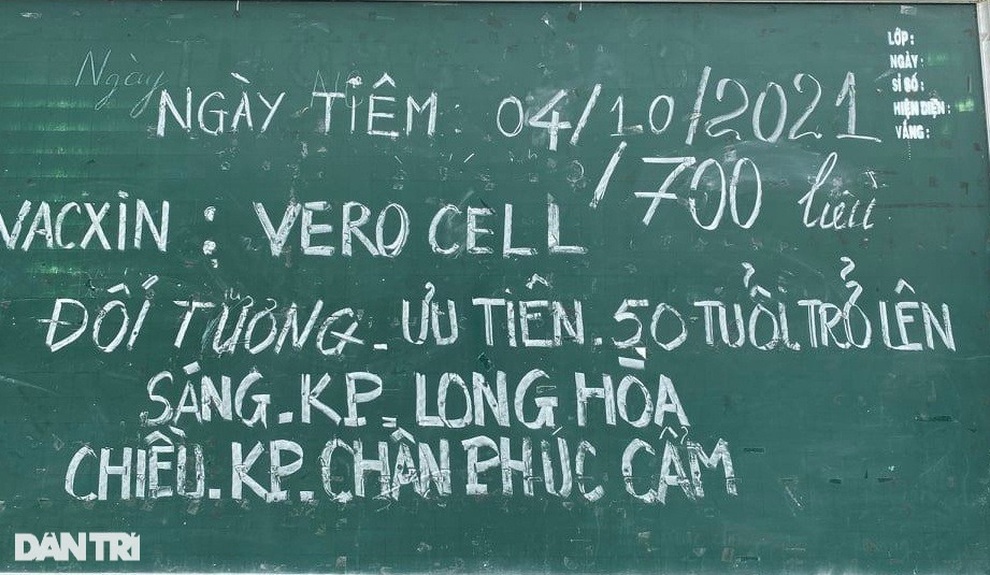 Ngày
NGÀY TIÊM: 04/10/2021
LỚP:
NGÀY:
SĨ SỐ:
HIỆN DIỆN:
VẮNG:
VACXIN: VERO CELL / 700 liều
ĐỐI TƯỢNG - ƯU TIÊN. 50 TUỔI TRỞ LÊN
SÁNG. KP. LONG HÒA
CHIỀU. KP. CHÂN PHÚC CẨM
DÂN TRÍ